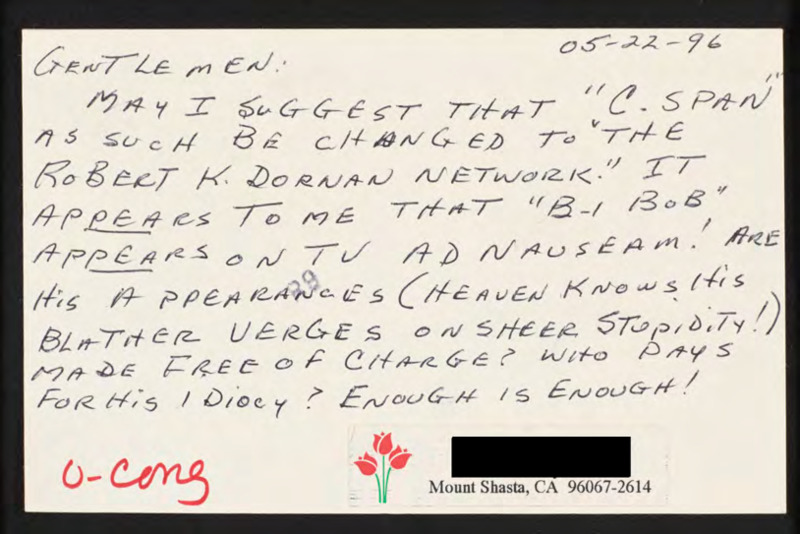 05-22-96
GENTLEMEN:
MAY I SUGGEST THAT "C. SPAN"
AS SUCH BE CHANGED TO "THE
ROBERT K. DORNAN NETWORK." IT
APPEARS TO ME THAT "B-1 BOB"
APPEARS ON TV AD NAUSEAM! ARE
HIS APPEARANCES (HEAVEN KNOWS HIS
BLATHER VERGES ON SHEER STUPIDITY!)
MADE FREE OF CHARGE? WHO PAYS
FOR HIS IDIOCY? ENOUGH IS ENOUGH!
U-Cong
Mount Shasta, CA 96067-2614